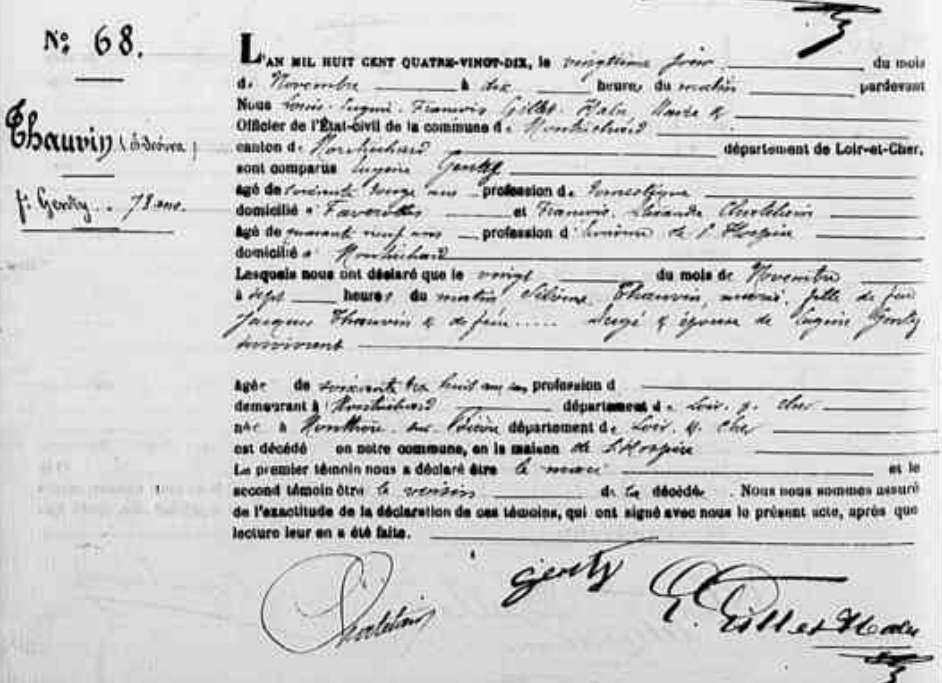 Nº 68.
Thauvin (Silvine)
fe Genty. 78 ans.
L'AN MIL HUIT CENT QUATRE-VINGT-DIX, le vingtième jour du mois
de Novembre à dix heures du matin pardevant
Nous Louis Eugène François Gilles Maire &
Officier de l'État-civil de la commune de Montrichard
canton de Montrichard département de Loir-et-Cher,
sont comparus Eugène Genty
âgé de soixante ans profession de domestique
domicilié à Faverolles et François Chatelain
âgé de quarante neuf ans profession d de l'Hospice
domicilié à Montrichard
Lesquels nous ont déclaré que le vingt du mois de Novembre
à sept heures du matin Silvine Thauvin, fille de feu
Jacques Thauvin & de feue ..... & épouse de Eugène Genty
survivant
Agée de soixante dix huit ans profession d
demeurant à Montrichard département de Loir & Cher
née à Monthou sur Bièvre département de Loir & Cher
est décédé en notre commune, en la maison de l'Hospice
Le premier témoin nous a déclaré être le mari et le
second témoin être le voisin de la décédée. Nous nous sommes assuré
de l'exactitude de la déclaration de ces témoins, qui ont signé avec nous le présent acte, après que
lecture leur en a été faite.
Genty
Chatelain
E. Gilles